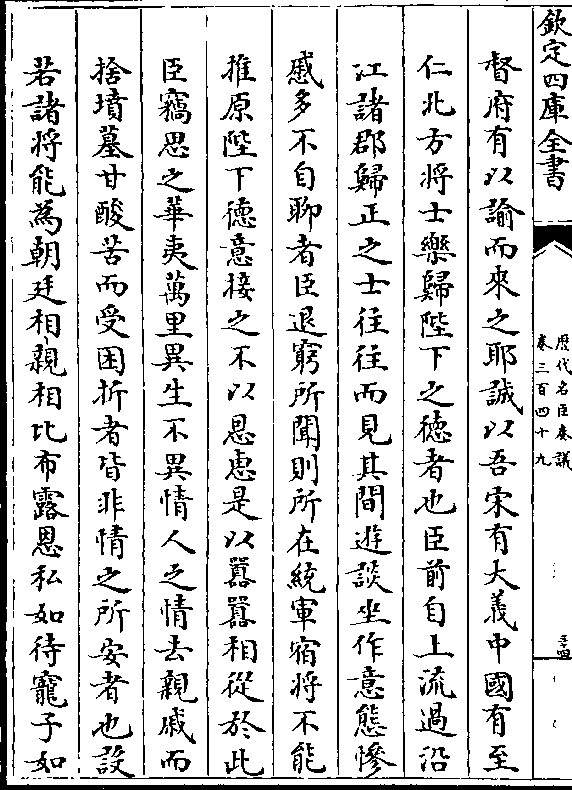 欽定四庫全書
歷代名臣奏議
卷三百四十九
督府有以諭而來之耶誠以吾宋有大義中國有至
仁北方將士樂歸陛下之德者也臣前自上流過沿
江諸郡歸正之士往往而見其間遊談坐作意態慘
慼多不自聊者臣退窮所聞則所在統軍宿將不能
推原陛下德意接之不以恩惠是以囂囂相從於此
臣竊思之華夷萬里異生不異情人之情去親戚而
捨墳墓甘酸苦而受困折者皆非情之所安者也設
若諸將能為朝廷相親相比布露恩私如待寵子如